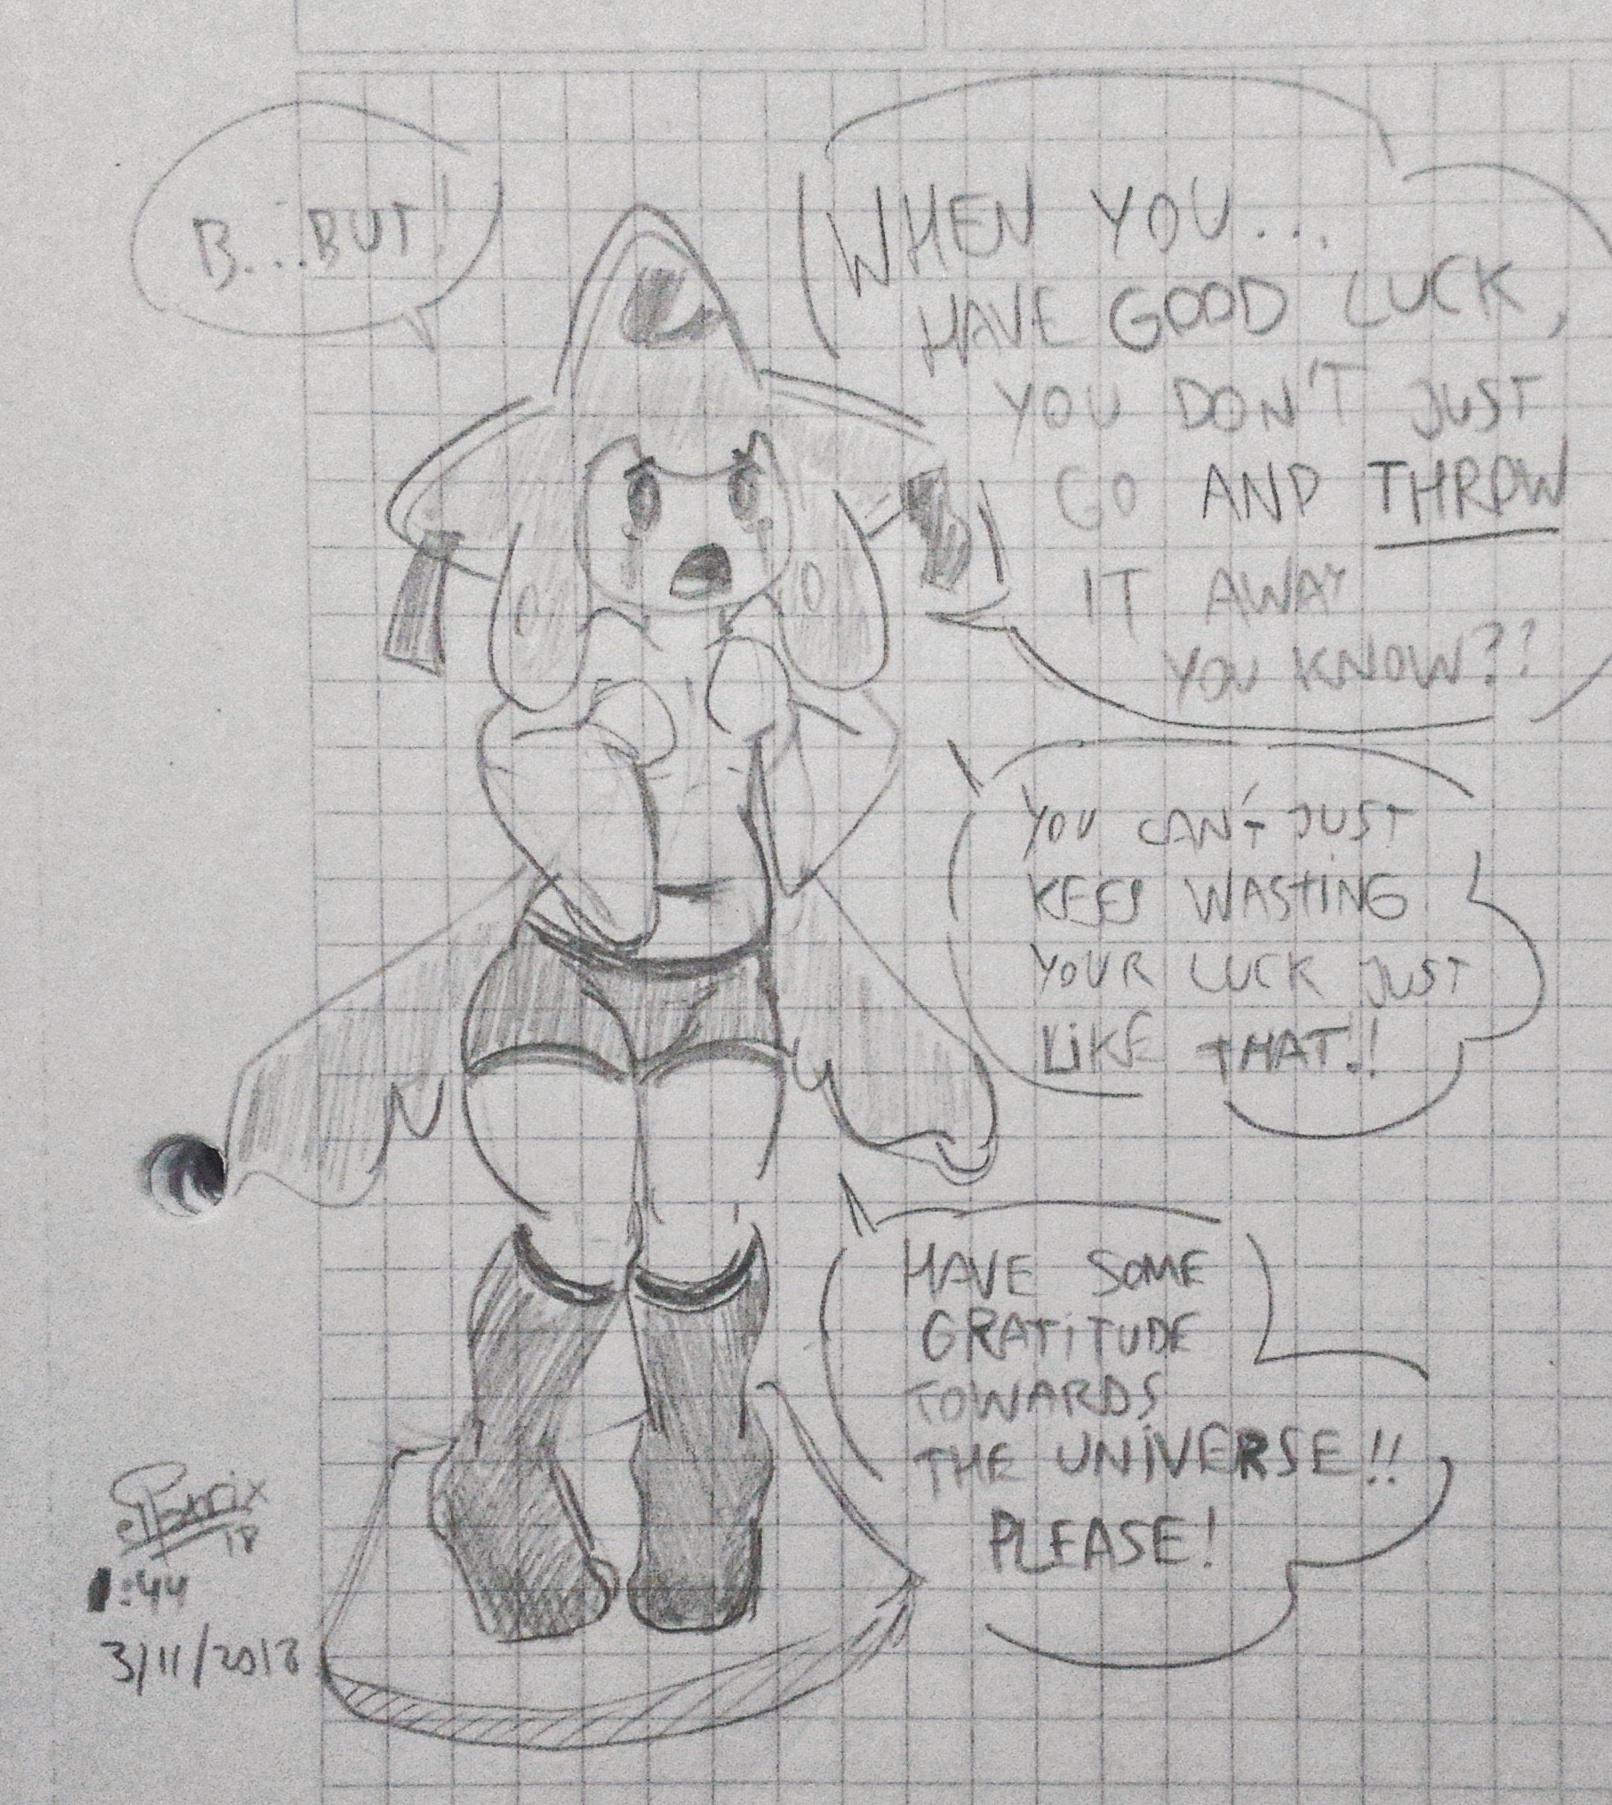 B...BUT!
WHEN YOU...
HAVE GOOD LUCK,
YOU DON'T JUST
GO AND THROW
IT AWAY
YOU KNOW??
YOU CAN'T JUST
KEEP WASTING
YOUR LUCK JUST
LIKE THAT!!
HAVE SOME
GRATITUDE
TOWARDS
THE UNIVERSE!!
PLEASE!
18
1:44
3/11/2018